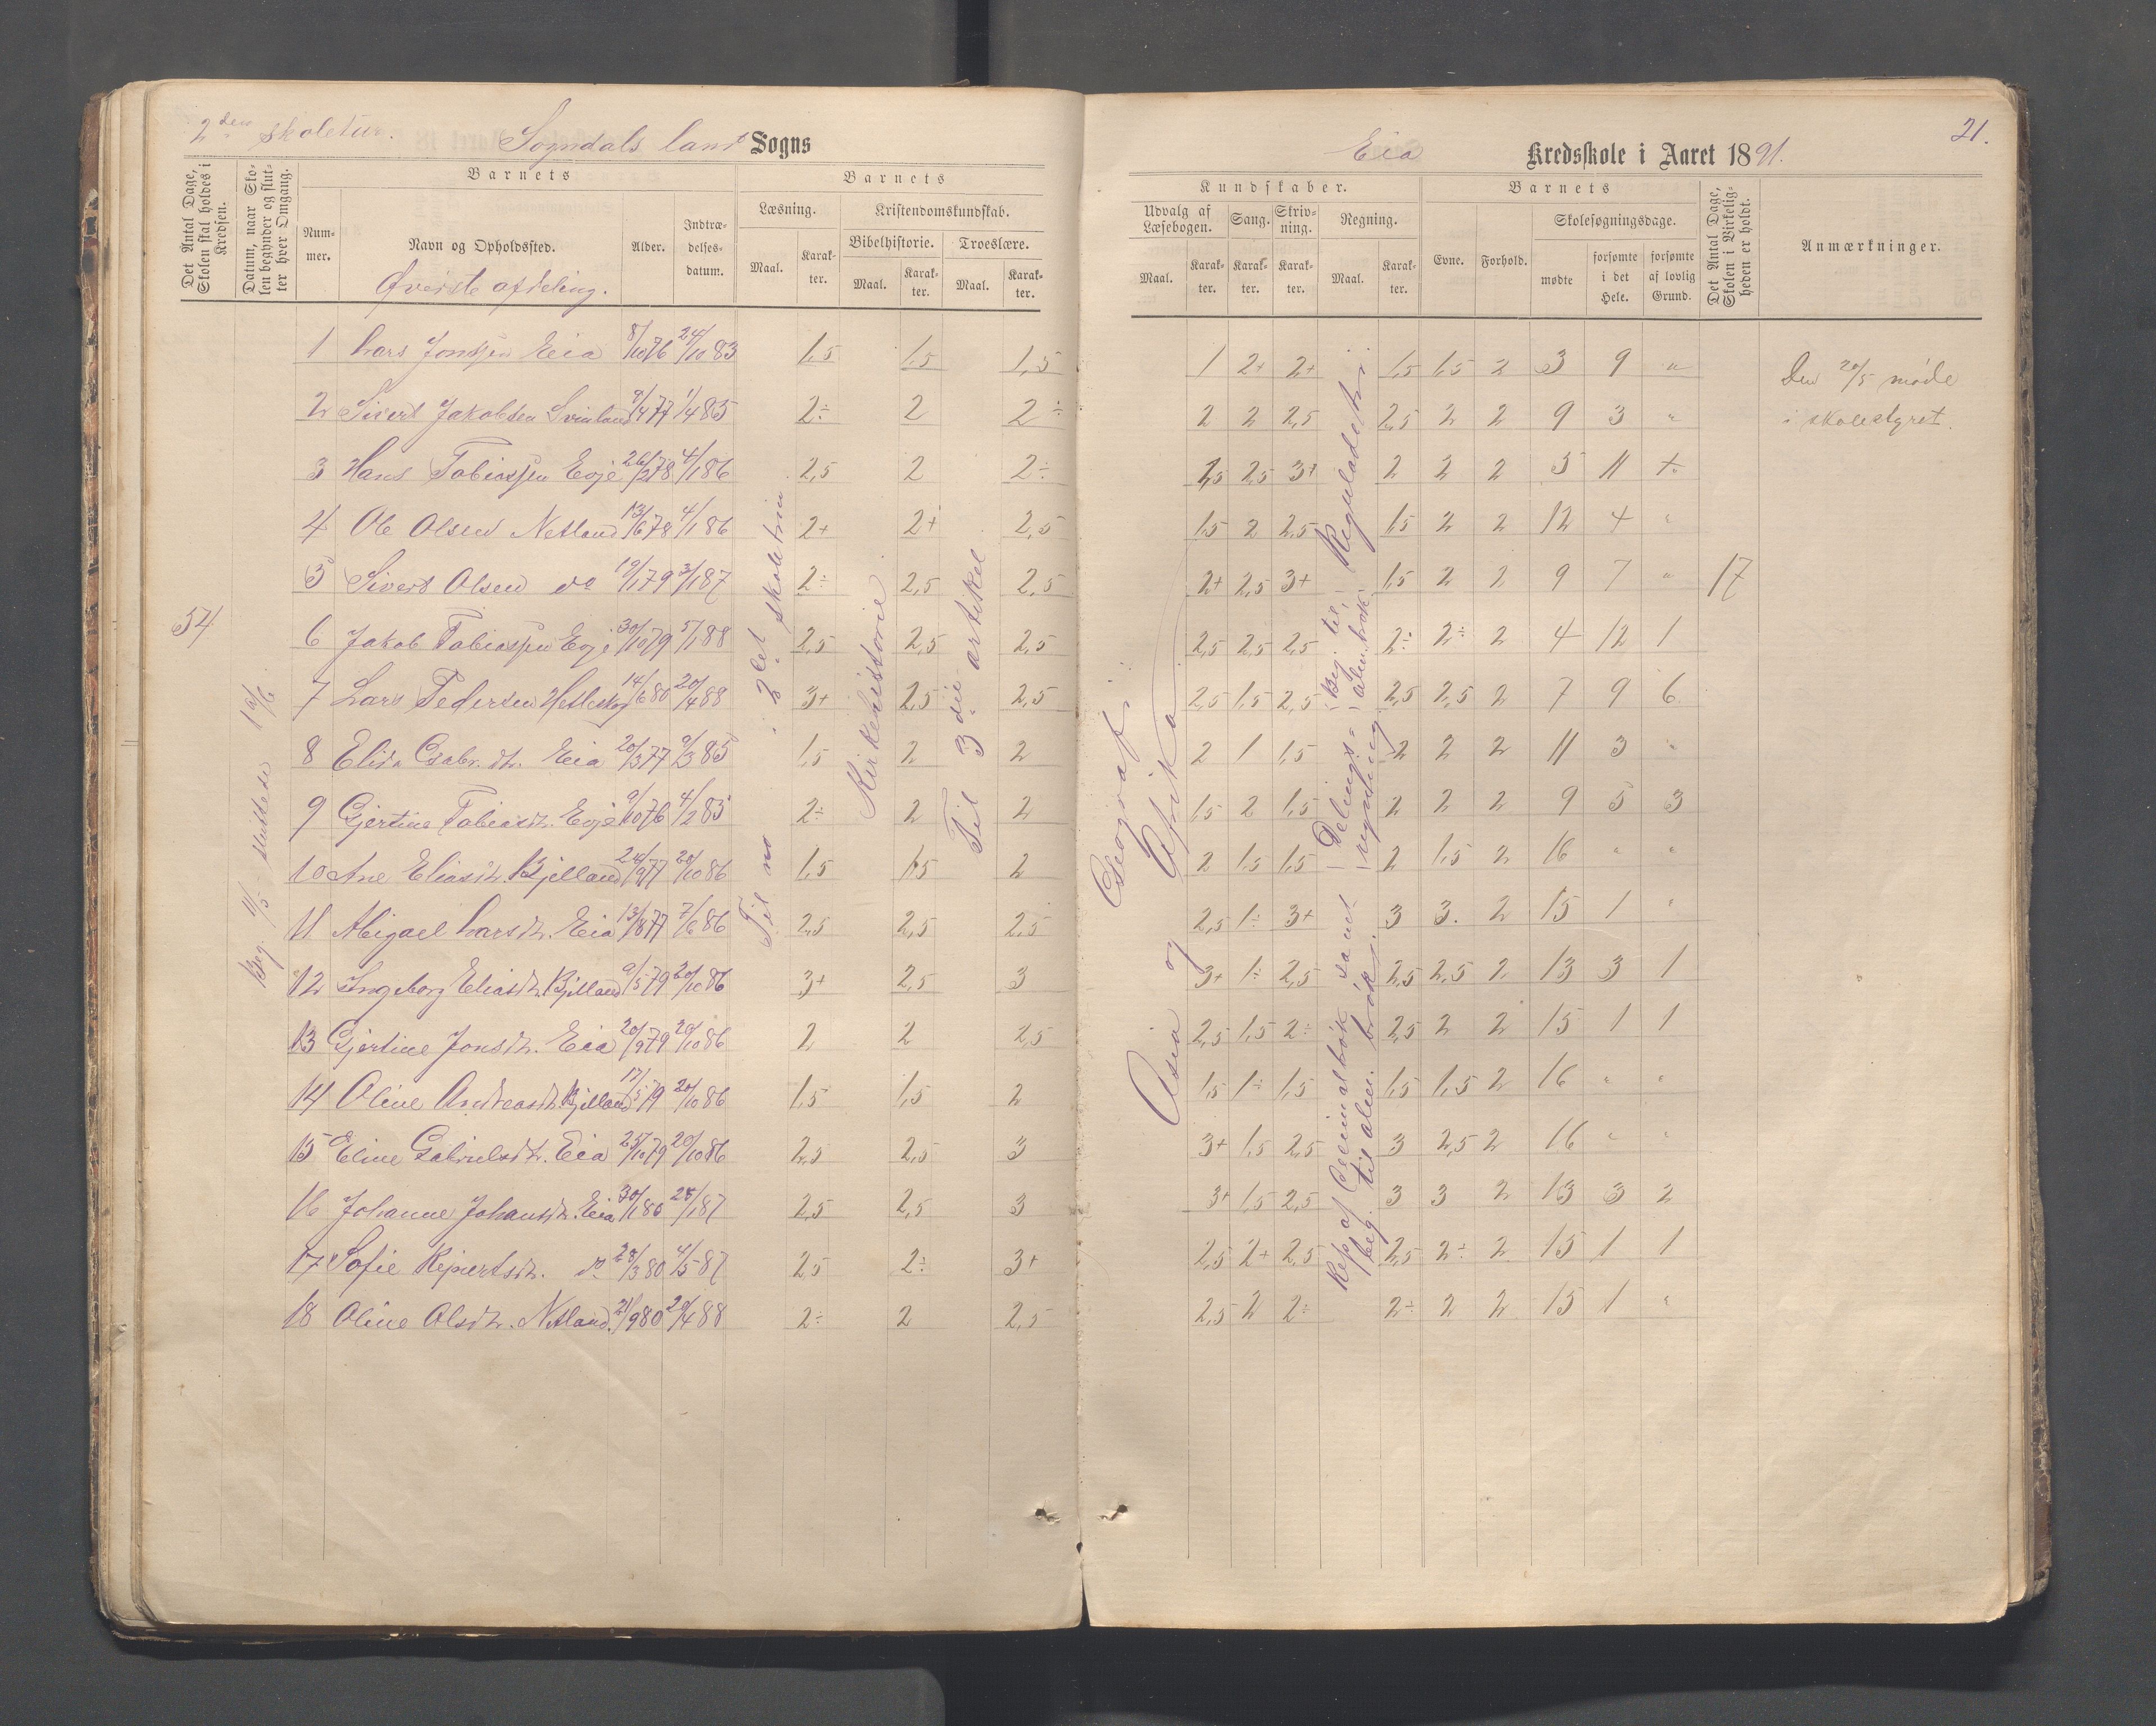 2den skoletur. Sogndals land Sogns
Det Antal Dage, Skolen skal holdes i Kredsen.
Datum, naar Skolen begynder og slutter hver Omgang.
Barnets
Barnets
Nummer.
Navn og Opholdssted.
Alder.
Indtrædelsesdatum.
Læsning.
Kristendomskundskab.
Bibelhistorie.
Troeslære.
Maal.
Karakter.
Maal.
Karakter.
Maal.
Karakter.
Øverste afdeling.
1 Lars Jonssen Eia 8/10 76 24/10 83 1,5 1,5 1,5
2 Sivert Jakobsen 9/4 77 1/4 85 2÷ 2 2÷
3 Hans Tobiassen Eoje 26/2 78 4/1 86 2,5 2 2÷
4 Ole Olsen Netland 13/6 78 4/1 86 2+ 2+ 2,5
5 Sivert Olsen do 19/1 79 3/1 87 2÷ 2,5 2,5
54
6 Jakob Tobiassen Eoje 30/10 79 5/1 88 2,5 2,5 2,5
7 Lars Pedersen 14/6 80 20/4 88 3+ 2,5 2,5
8 Elida Gabr.dt. Eia 20/3 77 9/3 85 1,5 2 2
9 Gjertine Tobiasdt. Eoje 9/10 76 4/2 85 2÷ 2 2
10 Ane Eliasdt. Bjelland 24/9 77 20/10 86 1,5 1,5 2
11 Abigael Larsdt. Eia 13/8 77 7/6 86 2,5 2,5 2,5
12 Ingeborg Eliasdt. Bjelland 9/5 79 20/10 86 3+ 2,5 3
13 Gjertine Jonsdt. Eia 20/9 79 20/10 86 2 2 2,5
14 Oline Andreasdt. Bjelland 17/5 79 20/10 86 1,5 1,5 2
15 Eline Gabrielsdt. Eia 25/10 79 20/10 86 2,5 2,5 3
16 Johanne Johansdt. Eia 30/1 80 28/1 87 2,5 2,5 3
17 Sofie do 28/3 80 4/5 87 2,5 2÷ 3+
18 Oline Olsdt. Netland. 21/9 80 20/4 88 2÷ 2 2,5
Beg. 11/5 sluttede
Til i 2det skoletrin
Kirkehistorie
Til 3die artikel
Eia Kredsskole i Aaret 1891.
21.
Kundskaber.
Barnets
Udvalg af Læsebogen.
Sang.
Skrivning.
Regning.
Evne.
Forhold.
Skolesøgningsdage.
Det Antal Dage, Skolen i Virkeligheden er holdt.
Anmærkninger.
Maal.
Karakter.
Karakter.
Karakter.
Maal.
Karakter.
mødte
forsømte i det Hele.
forsømte af lovlig Grund.
1 2+ 2+ 1,5 1,5 2 3 9 "
Den 20/5 møde
i skolestyret.
2 2 2,5 2,5 2 2 9 3 "
2,5 3+ 2 2 2 5 11
1,5 2 2,5 1,5 2 2 12 4 "
2+ 2,5 3+ 1,5 2 2 9 7 " 17
2,5 2,5 2,5 2÷ 2÷ 2 4 12 1
2,5 1,5 2,5 2,5 2,5 2 7 9 6
2 1 1,5 2 2 2 11 3 "
1,5 2 1,5 2 2 2 9 5 3
2 1,5 1,5 2 1,5 2 16 " "
2,5 1÷ 3+ 3 3. 2 15 1 "
3+ 1÷ 2,5 2,5 2,5 2 13 3 1
2,5 1,5 2÷ 2,5 2 2 15 1 1
1,5 1÷ 1,5 1,5 1,5 2 16 " "
3+ 1,5 2,5 3 2,5 2 16 " "
3+ 1,5 2,5 3 3 2 13 3 2
2,5 2+ 2,5 2,5 2÷ 2 15 1 1
2,5 2 2÷ 2÷ 2 2 15 1 "
Geografi
Asia og Afrika
Rep. af Decimalbrøk samt Delings= Beg. til Reguladetri
beg. til alm. brøk. regning alm. brøk.